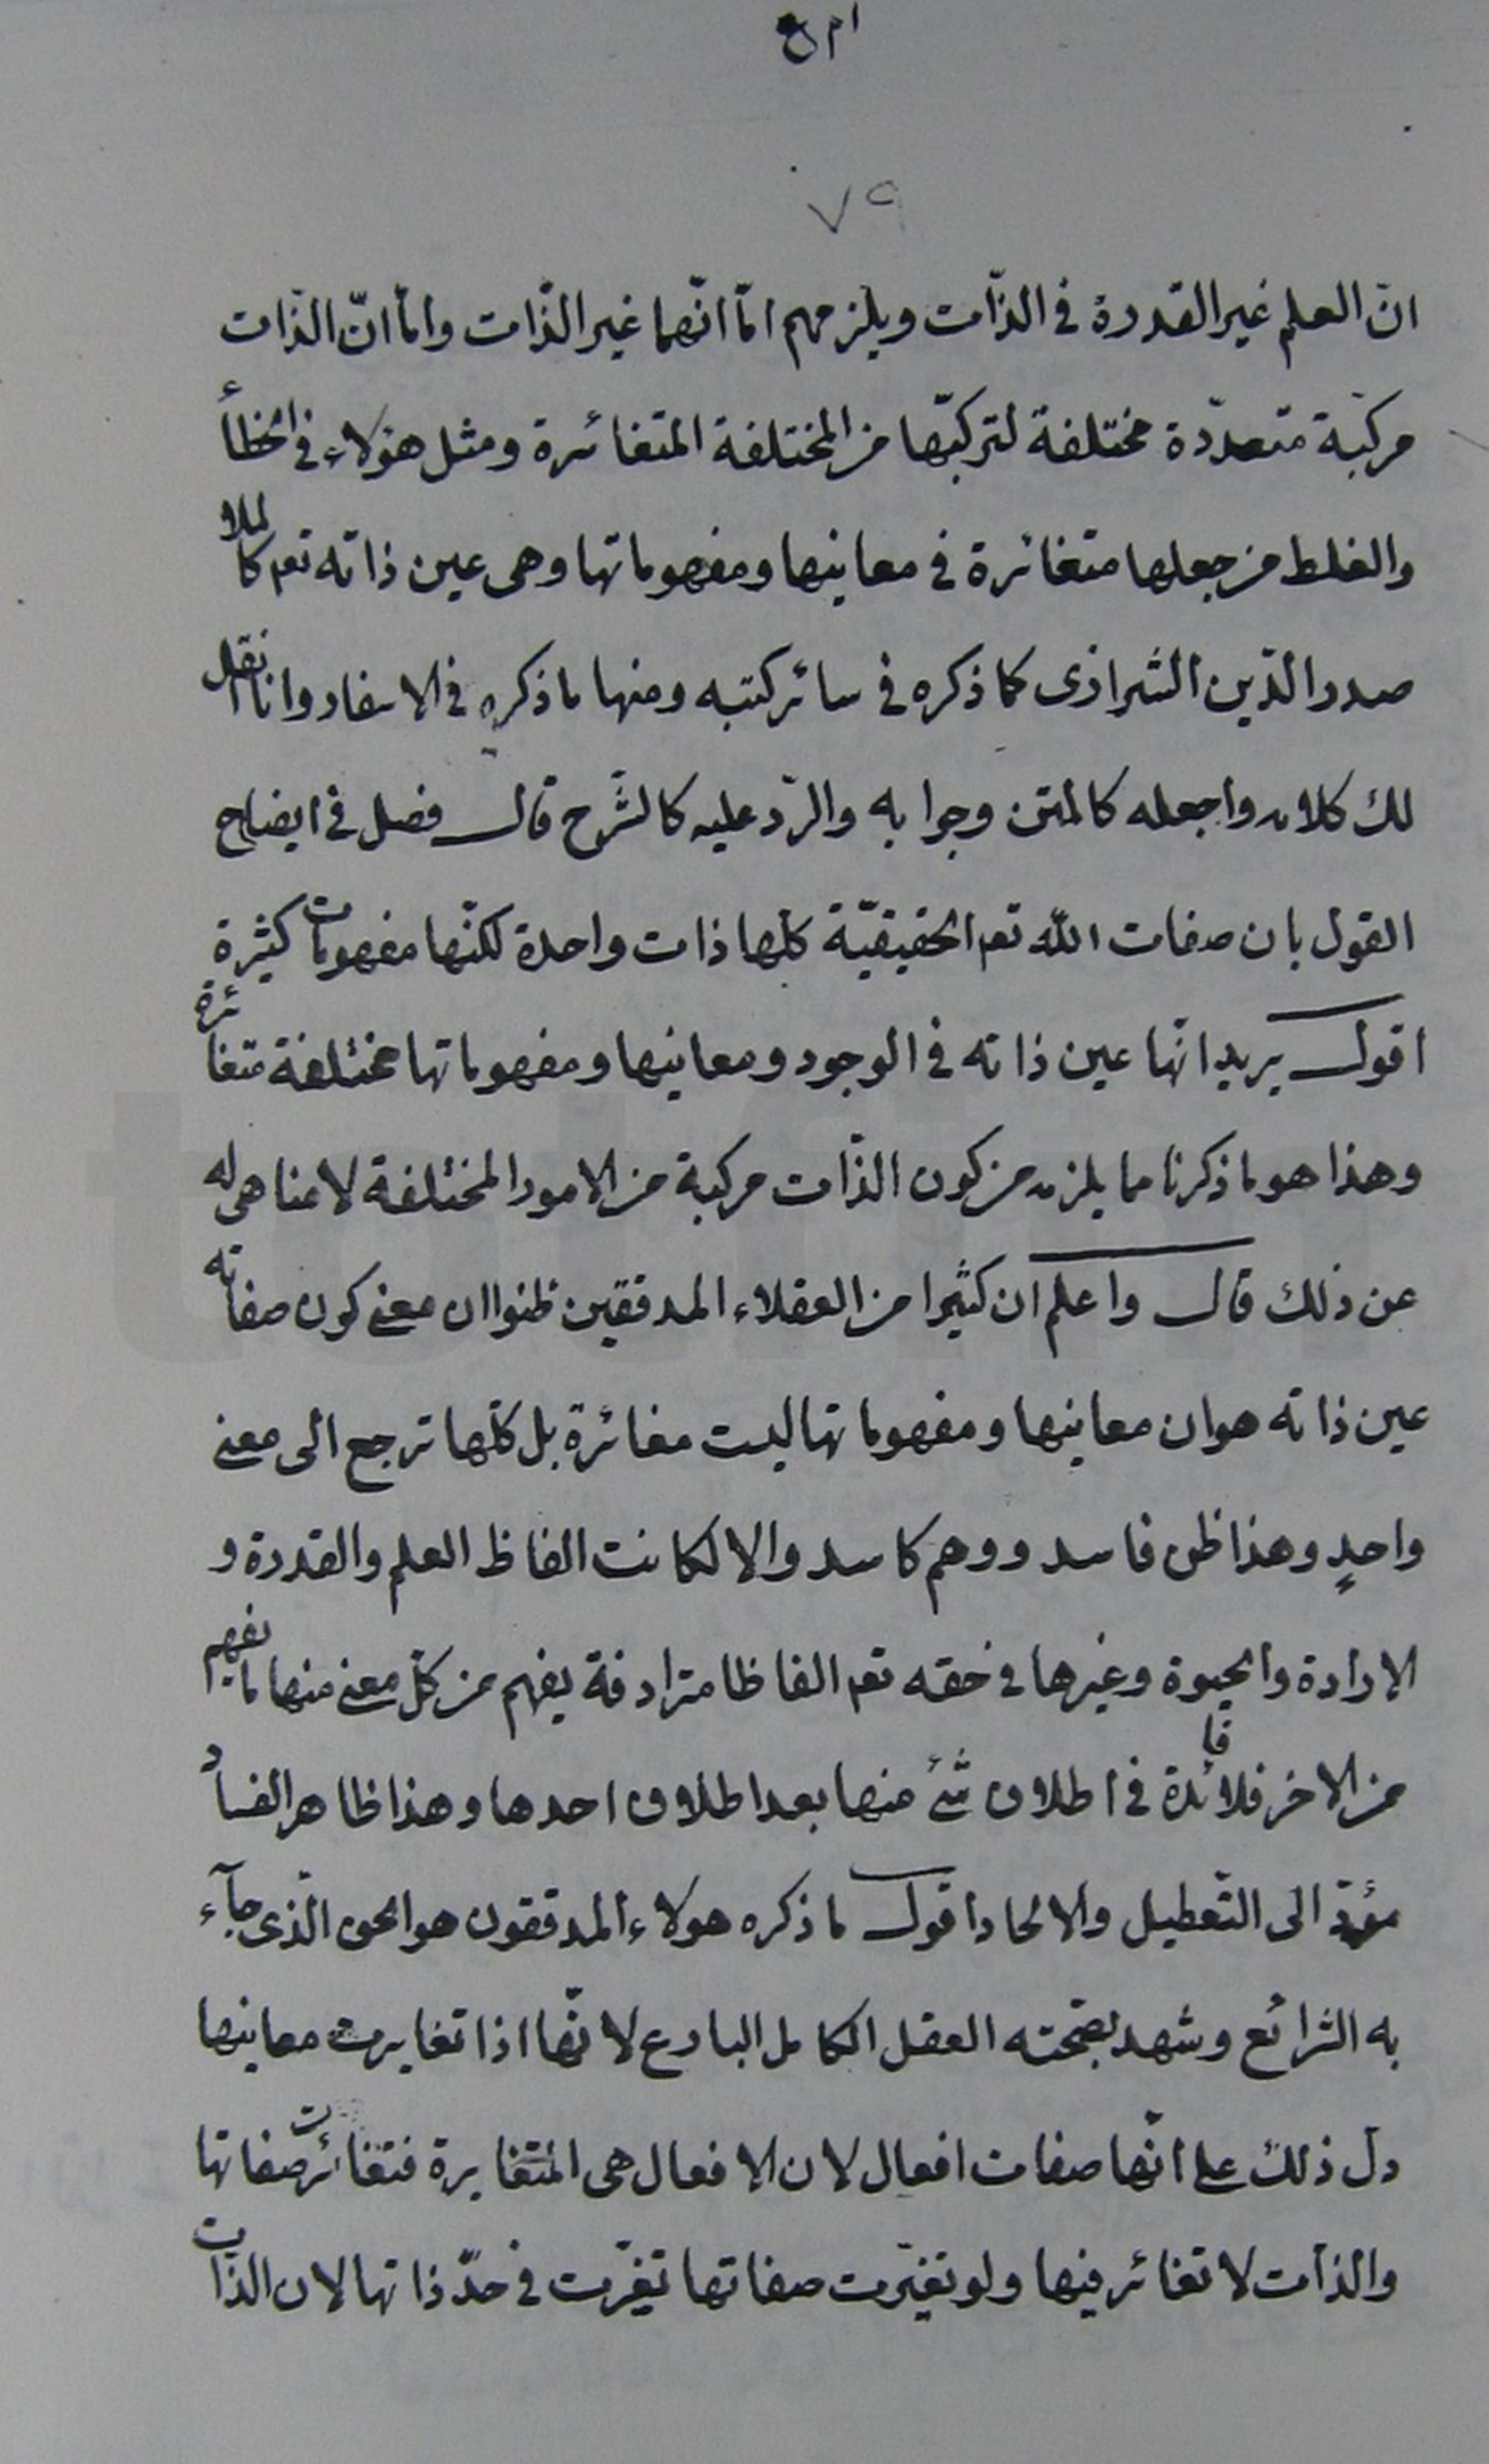 ٧٩
انّ العلم غير القدرة فى الذّات ويلزمهم امّا انّهما غير الذّات وامّا انّ الذّات
مركبّة متعدّدة مختلفة لتركبّها من المختلفة المتغائرة ومثل هؤلاء فى الخطأ
والغلط من جعلها متغائرة فى معانيها ومفهوماتها وهى عين ذاته تعم كالملا
صدر الدّين الشرازى كما ذكره فى سائر كتبه ومنها ما ذكره فى الاسفار وانا انقل
لك كلامه واجعله كالمتن وجوابه والرّد عليه كالشّرح قال فصل فى ايضاح
القول بان صفات الله تعم الحقيقيّة كلها ذات واحدة لكنّها مفهومات كثيرة
اقول يريد انّها عين ذاته فى الوجود ومعانيها ومفهوماتها مختلفة متغائرة
وهذا هو ما ذكرنا مما يلزمه من كون الذّات مركبة من الامور المختلفة لا مناص له
عن ذلك قال واعلم ان كثيرا من العقلاء المدققين ظنوا ان معنى كون صفاته
عين ذاته هو ان معانيها ومفهوماتها ليست مغائرة بل كلّها ترجع الى معنى
واحدٍ وهذا ظن فاسد ووهم كاسد والا لكانت الفاظ العلم والقدرة و
الارادة والحيوة وغيرها فى حقه تعم الفاظا مترادفة يفهم من كلّ معنى منها ما يفهم
من الاخر فلا فائدة فى اطلاق شئ منها بعد اطلاق احدها وهذا ظاهر الفساد
مؤدّ الى التّعطيل والالحاد اقول ما ذكره هولاء المدققون هو الحق الّذى جآء
به الشرائع وشهد بصحّته العقل الكامل البارع لانّها اذا تغايرت معانيها
دل ذلك على انّها صفات افعال لان الافعال هى المتغايرة فتغائرت صفاتها
والذات لا تغائر فيها ولو تغيّرت صفاتها تغيّرت فى حدّ ذاتها لان الذّات